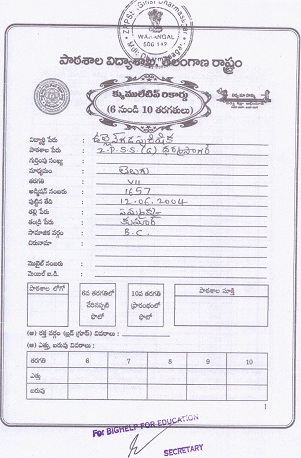 WARANGAL
506 142
పాఠశాల విద్యాశాఖ, తెలంగాణ రాష్ట్రం
క్యుములేటివ్ రికార్డు
(6 నుండి 10 తరగతులు)
విద్యార్థి పేరు
పాఠశాల పేరు Z.P.S.S.(G) ధర్మసాగర్
గుర్తింపు సంఖ్య
మాధ్యమం తెలుగు
తరగతి VII
అడ్మిషన్ నంబరు 1657
పుట్టిన తేది 12.06.2004
తల్లి పేరు సమ్మక్క
తండ్రి పేరు కుమార్
సామాజిక వర్గం B.C.
చిరునామా
మొబైల్ నంబరు
మెయిల్ ఐ.డి.
పాఠశాల లోగో
6వ తరగతిలో చేరినప్పటి ఫొటో
10వ తరగతి ప్రారంభంలో ఫొటో
పాఠశాల సూక్తి
(అ) రక్త వర్గం (బ్లడ్ గ్రూప్) వివరాలు :
(ఆ) ఎత్తు, బరువు వివరాలు :
తరగతి 6 7 8 9 10
ఎత్తు
బరువు
1
For BIGHELP FOR EDUCATION
SECRETARY